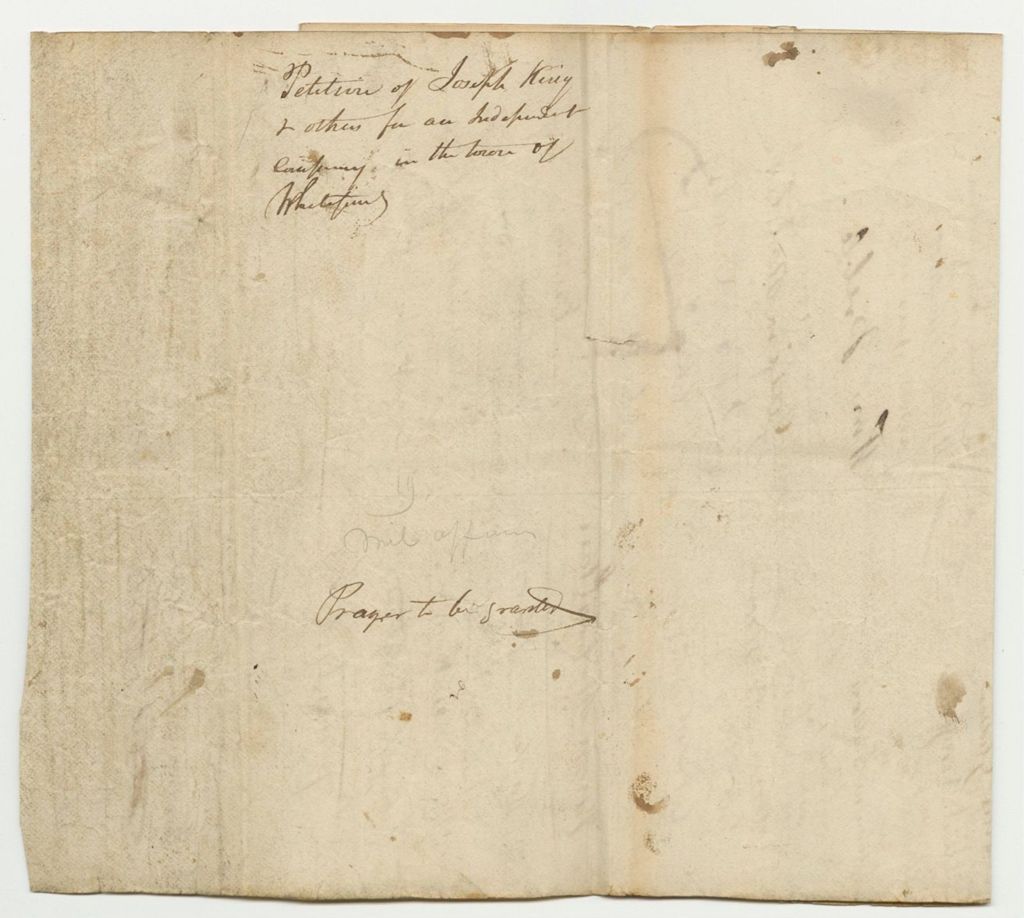 Petition of Joseph King
& others for an Independent
company in the town of
Whitefield
19
Mil affairs
Prayer to be granted